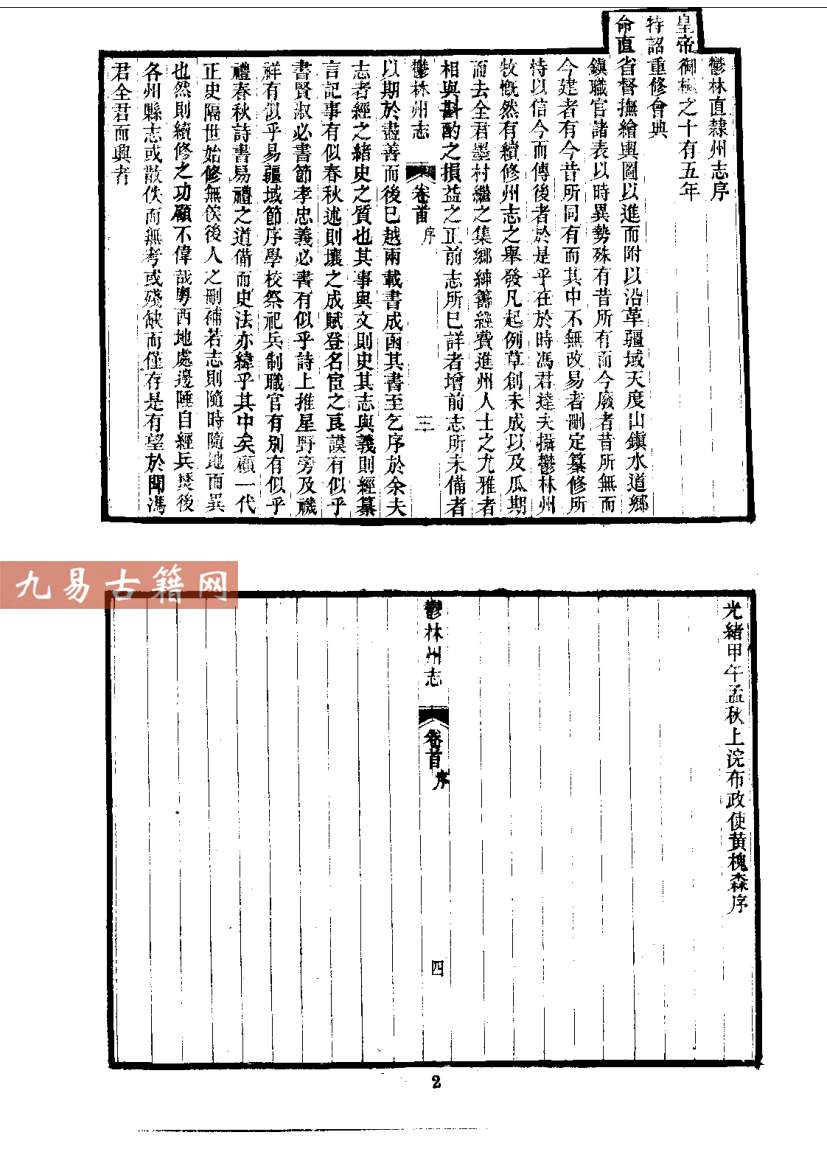 鬱林直隸州志序
皇帝御極之十有五年
特詔重修會典
命直省督撫繪輿圖以進而附以沿革疆域天度山鎮水道鄉
鎮職官諸表以時異勢殊有昔所有而今廢者昔所無而
今建者有今昔所同有而其中不無改易者刪定纂修所
恃以信今而傳後者於是乎在於時馮君達夫攝鬱林州
牧慨然有續修州志之舉發凡起例草創未成以及瓜期
而去全君墨村繼之集鄉紳籌經費進州人士之尤雅者
相與斟酌之損益之正前志所已詳者增前志所未備者
鬱林州志 卷首 序 三
以期於盡善而後已越兩載書成函其書至乞序於余夫
志者經之緒史之質也其事與文則史其志與義則經纂
言記事有似春秋述則壤之成賦登名宦之良謨有似乎
書賢淑必書節孝忠義必書有似乎詩上推星野旁及禨
祥有似乎易疆域節序學校祭祀兵制職官有別有似乎
禮春秋詩書易禮之道備而史法亦緯乎其中矣顧一代
正史隔世始修無俟後人之刪補若志則隨時隨地而異
也然則續修之功顧不偉哉粵西地處邊陲自經兵燹後
各州縣志或散佚而無考或殘缺而僅存是有望於聞馮
君全君而興者
光緒甲午孟秋上浣布政使黃槐森序
鬱林州志 卷首 序 四
九易古籍网
2